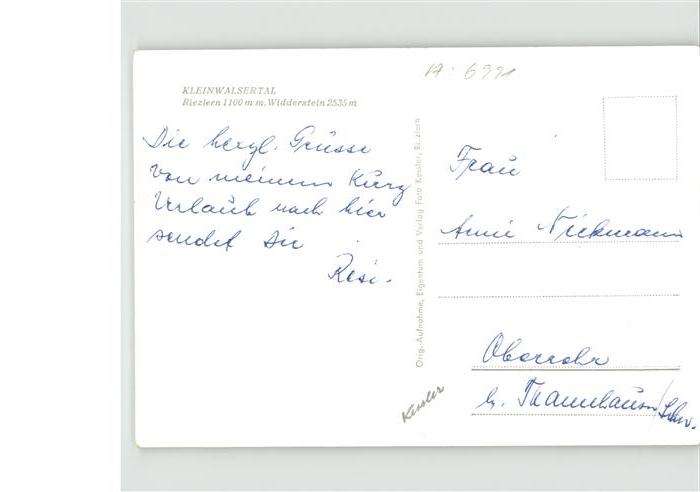 A - 6991
KLEINWALSERTAL
Riezlern 1100 m m. Widderstein 2535 m
Die herzl. Grüsse
von meinem Kurz
Urlaub nach hier
sendet Dir
Resi.
Orig.-Aufnahme, Eigentum und Verlag Foto Kessler, Riezlern
Frau
Anni Niekmann
Oberrohr
b. Thannhausen/Schw.
Kessler